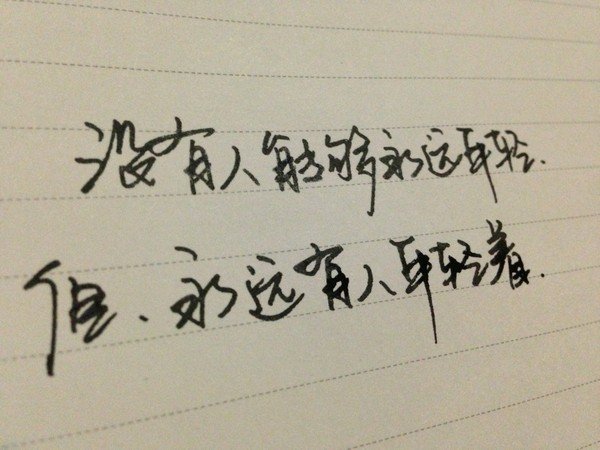 没有人能够永远年轻.
但、永远有人年轻着.